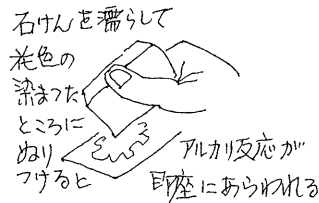 石けんを濡らして
花色の
染まつた
ところに
ぬり
つけると
アルカリ反応が
即座にあらわれる